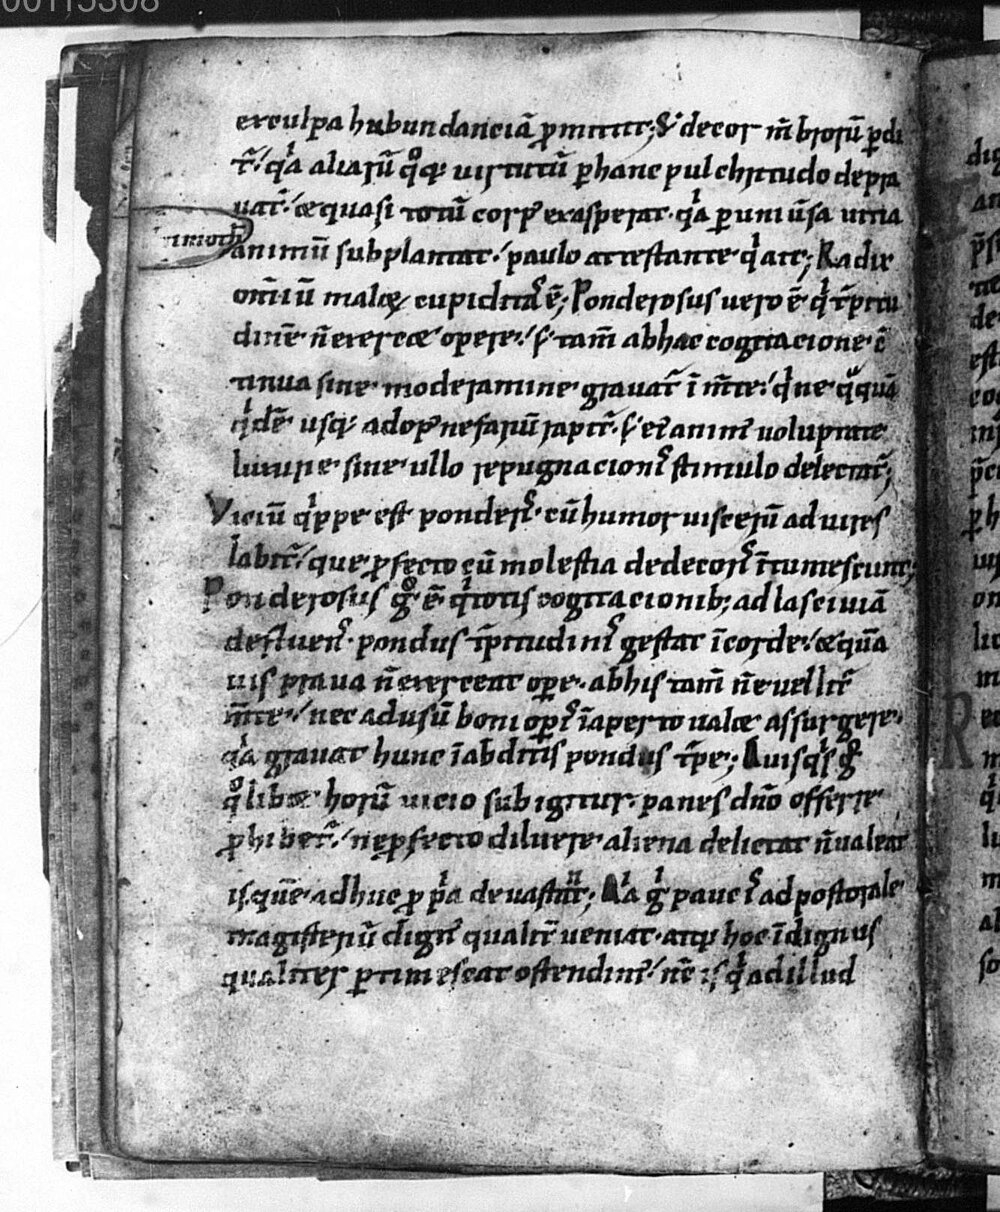 00115308
exculpa habundanciā ꝓmittit; & decor m̄broꝝū ꝑdi
t̄r̄ / qͥa aliarū qͦqꝫ uirtutū ꝑ hanc pulchritudo depra
uat̄ / & quasi totū corpꝰ exasperat. qͥa ꝑ uniūsa uitia
timoth̄
animū subplantat / paulo attestante qͥ ait; Radix
om̄iū malo⁊ cupiditas ē; Ponderosus uero ē qͥ t̄pitu
dinē n̄ exercet opere / s; tam̄ ab hac cogitacione c̄
tinua sine moderamine grauat̄ ī m̄te / qͥ neqͦquā
qͥdē usqꝫ ad opꝰ nefariū rapit̄ / s; ei animꝰ uoluptate
luxurie sine ullo repugnacionis stimulo delectat̄;
Viciū qͥppe est ponderis cū humor uiscerū ad uires
labit̄ / que ꝓfecto cū molestia dedecoris ītumescunt;
Ponderosus gͦ ē qͥ totis cogitacionibꝫ ad lasciuiā
defluens pondus t̄pitudinis gestat ī corde / & quā
uis praua n̄ exerceat opere. ab his tam̄ n̄ euellit̄
m̄te / nec ad usū boni operis ī aperto ualet assurgere.
qͥa grauat hunc ī abditis pondus t̄pe; Quisqͥs gͦ
qͦlibet horū uicio subigitur. panes dn̄o offerre
ꝓhibet̄ / ne ꝓfecto diluere aliena delicta n̄ ualeat
is. quē adhuc ꝓpͥa deuastant; Qͥa gͥ paucis ad pastorale
magisteriū dignꝰ qualit̄ ueniat. atqꝫ hoc īdignus
qualiter ꝑtimescat ostendimꝰ / nc̄ is qͥ ad illud